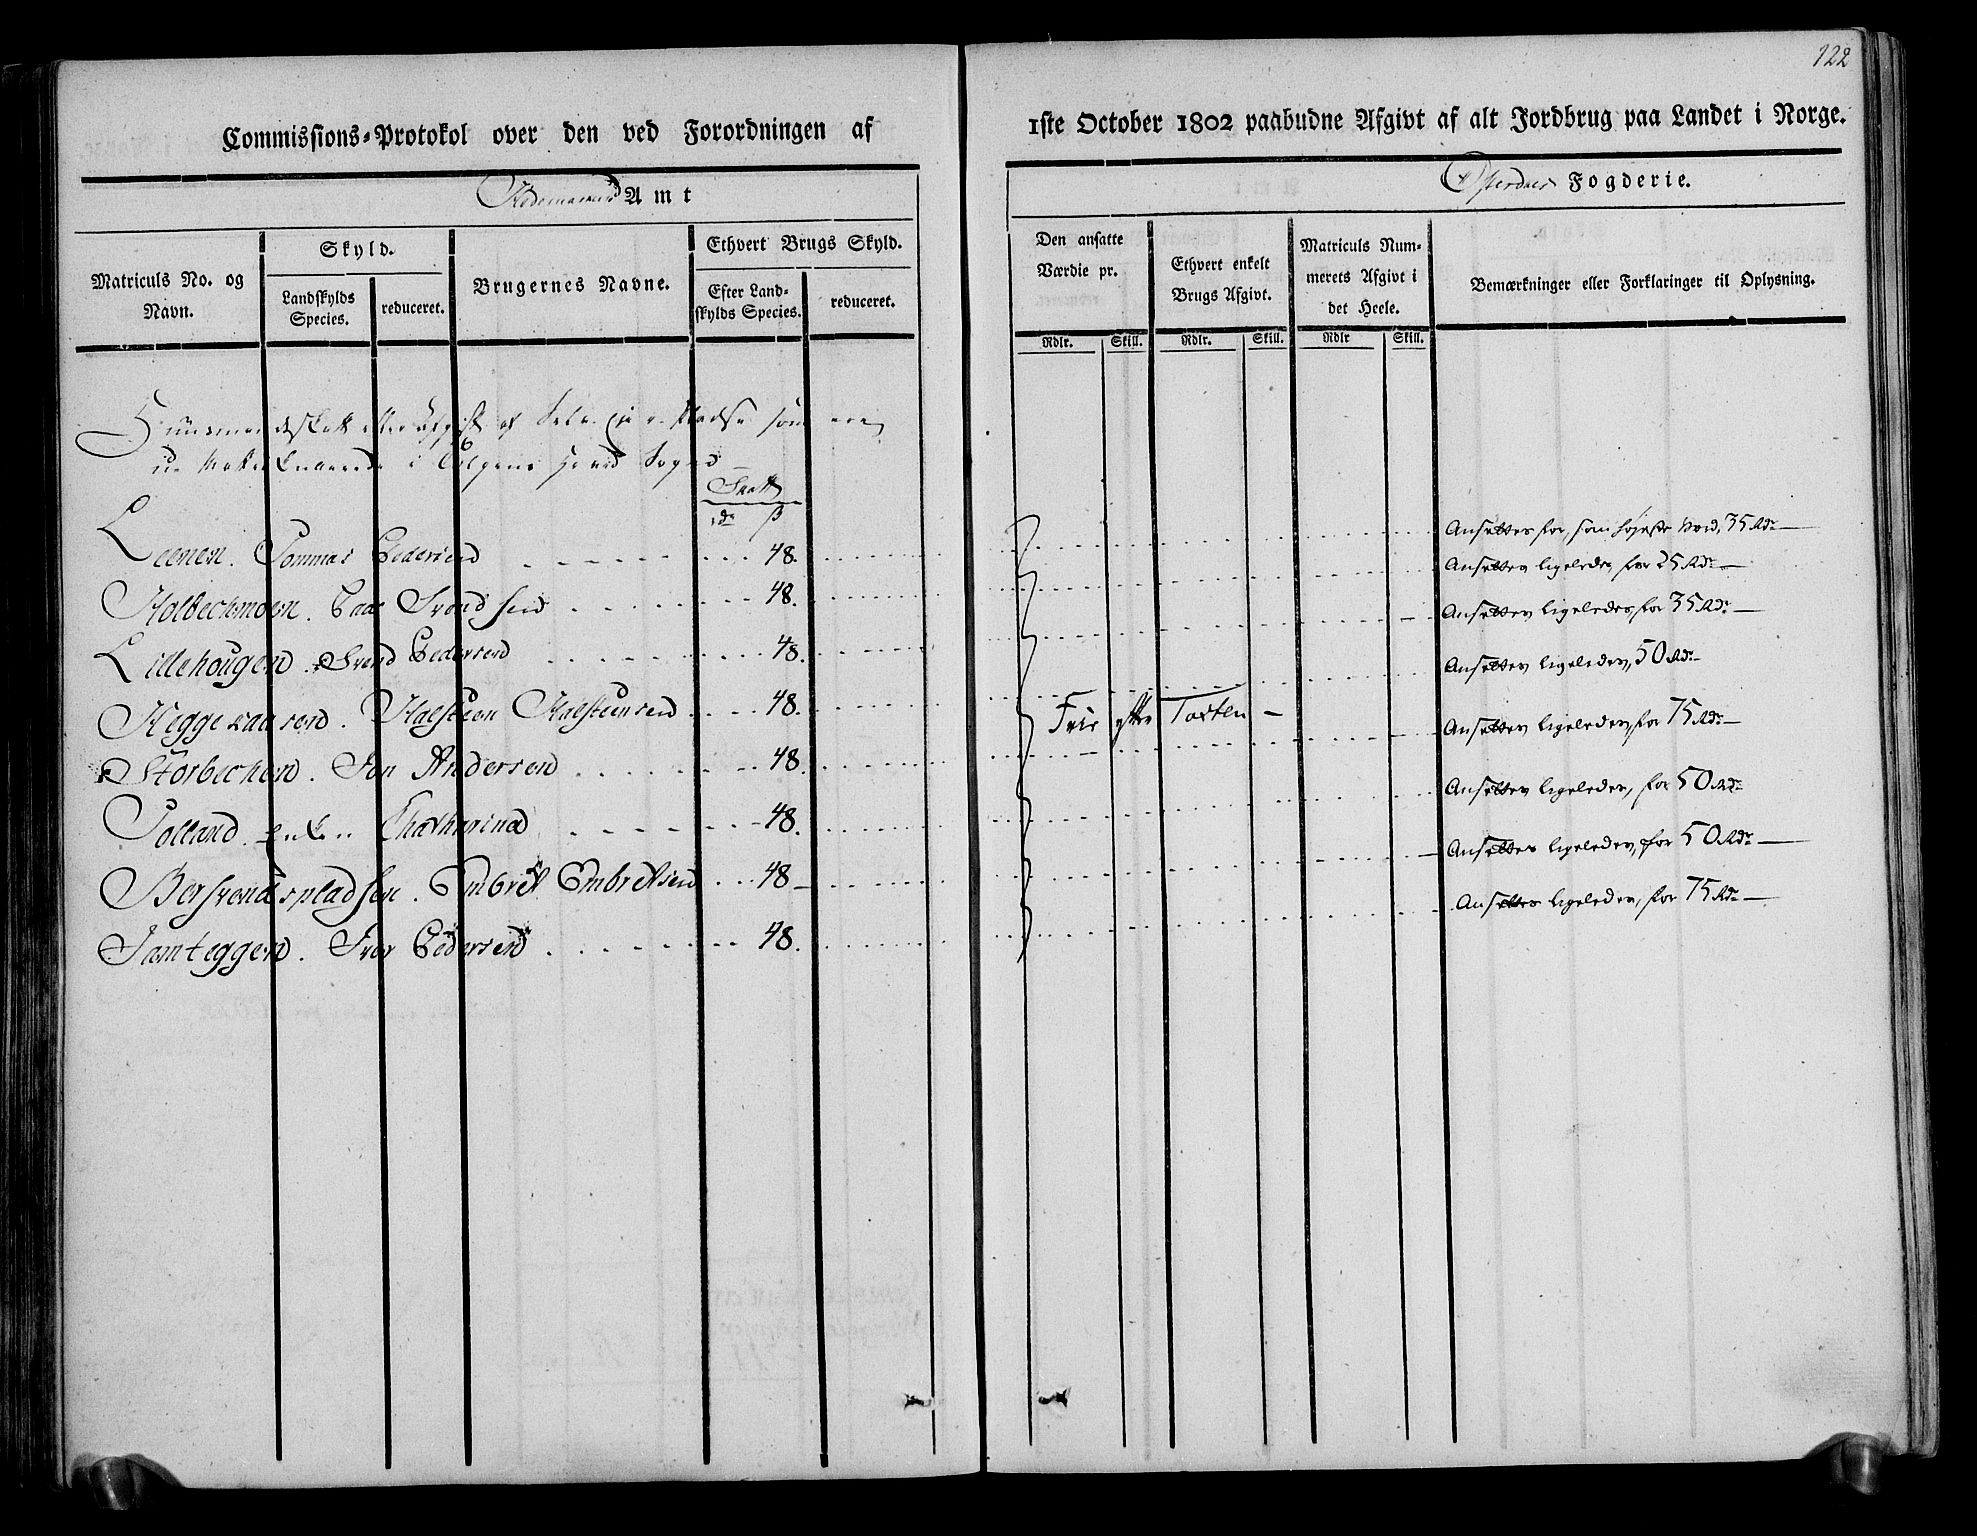 122
Commissions-Protokol over den ved Forordningen af
1ste October 1802 paabudne Afgivt af alt Jordbrug paa Landet i Norge.
Hedemarkens Amt
Østerdals Fogderie.
Matriculs No. og Navn.
Skyld.
Landskylds Species.
reduceret.
Brugernes Navne.
Ethvert Brugs Skyld.
Efter Landskylds Species.
reduceret.
Den ansatte Værdie pr.
Rdlr. Skill.
Ethvert enkelt Brugs Afgivt.
Rdlr. Skill.
Matriculs Nummerets Afgivt i det Heele.
Rdlr Skill.
Bemærkninger eller Forklaringer til Oplysning.
Huusmandskatt eller Afgift af Pladse som ere
i Tolgens Sogn
Skatt
ß
Leenen. Tommas Pedersen 48. Ansettes for, som høyeste Værd, 35 Rdr
Holbechmoen. Svendsen 48. Ansettes ligeledes for 25 Rdr
Lillehougen. Svend Pedersen 48. Ansettes ligeledes for 35 Rdr
Heggeraasen. Halsteen Halsteensen 48. Ansettes ligeledes, 50 Rdr
Storbechen. Jon Andersen 48. Ansettes ligeledes, for 75 Rdr
Tolland. Enken Chatharina 48. Ansettes ligeledes, for 50 Rdr
Bersvendspladsen. Embret Embretsen 48 Ansettes ligeledes, for 50 Rdr
Jamteggen. Iver Pedersen 48. Ansettes ligeledes, for 75 Rdr